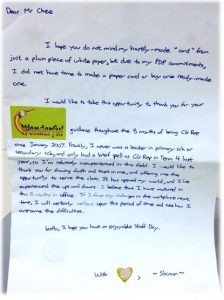 Dear Mr Chee
I hope you do not mind my hastily-made "card" from
just a plain piece of white paper, but due to my PDP commitments,
I did not have time to make a paper card or buy one ready-made
one.
I would like to take this opportunity to thank you for your
guidance throughout the 8 months of being CG Rep
since January 2007. Frankly, I never was a leader in primary sch or
secondary sch, and only had a brief spell as CG Rep in Term 4 last
year, so I'm relatively inexperienced in this field. I would like to
thank you for having faith and trust in me, and offering me the
opportunity to serve the class. It has opened my world, and I've
experienced the ups and downs. I believe that I have matured in
the 8 months in office. If I face any challenges in the workplace next
time, I will certainly reflect upon this period of time and see how I
overcame the difficulties.
Lastly, I hope you have an enjoyable Staff Day.
With